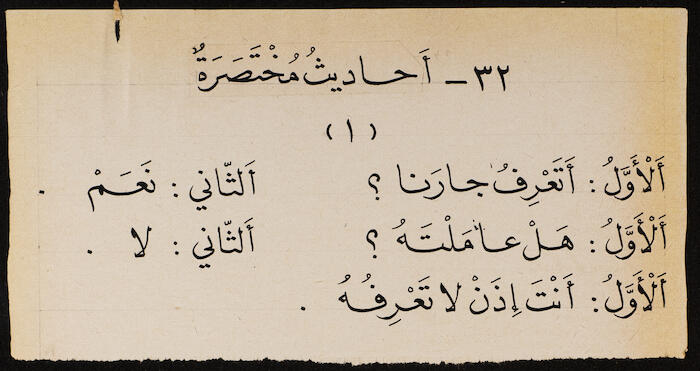 ٣٢ – أَحاديثُ مُخْتَصَرَةٌ
(١)
اَلْأَوَّلُ : أَتَعْرِفُ جارَنا ؟ اَلثّاني : نَعَمْ .
اَلْأَوَّلُ : هَلْ عامَلْتَهُ ؟ اَلثّاني : لا .
اَلْأَوَّلُ : أَنْتَ إِذَنْ لا تَعْرِفُهُ .